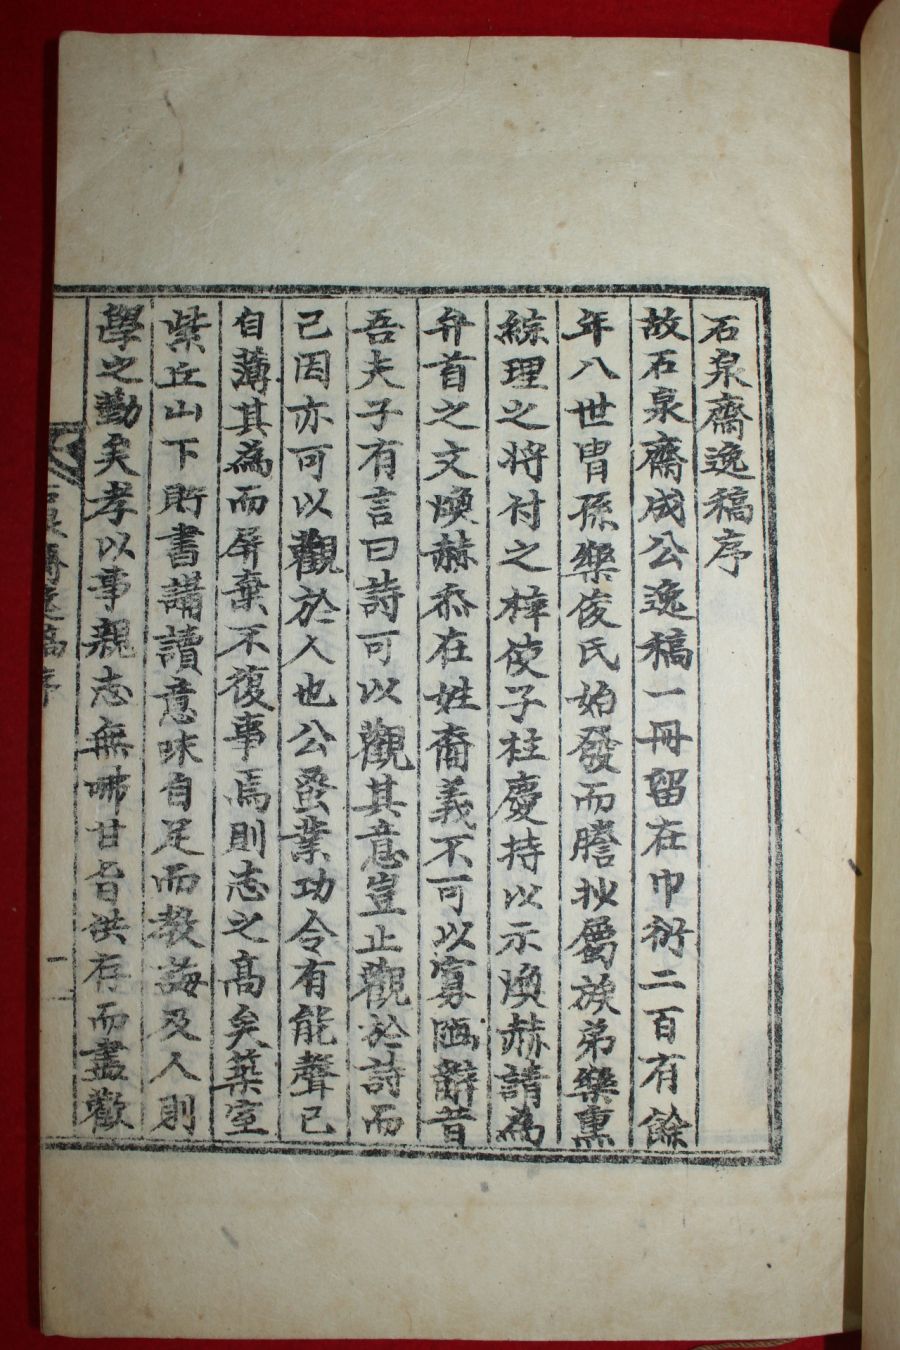 石泉齋逸稿序
故石泉齋成公逸稿一冊留在巾衍二百有餘
年八世胄孫樂俊氏始發而謄抄屬族弟樂熏
綜理之將付之梓使子柱慶持以示煥赫請為
弁首之文煥赫忝在姓裔義不可以寡陋辭昔
吾夫子有言曰詩可以觀其意豈止觀於詩而
已因亦可以觀於人也公蚤業功令有能聲已
自薄其為而屏棄不復事焉則志之高矣築室
紫丘山下貯書講讀意味自足而教誨及人則
學之勤矣孝以事親志無咈甘旨供存而盡歡
石泉齋逸稿序
一